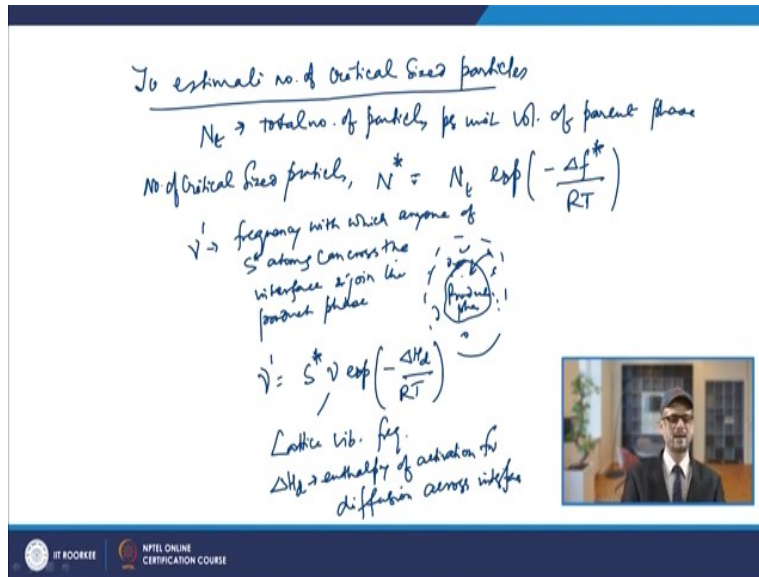 To estimate no. of critical sized particles
N_t → total no. of particles per unit vol. of parent phase
No. of critical sized particles, N* = N_t exp(-Δf*/RT)
ν' → frequency with which anyone of
S* atoms can cross the
interface & join the
product phase
Product
phase
ν' = S* ν exp(-ΔH_d/RT)
Lattice vib. freq.
ΔH_d → enthalpy of activation for
diffusion across interface
IIT ROORKEE
NPTEL ONLINE
CERTIFICATION COURSE